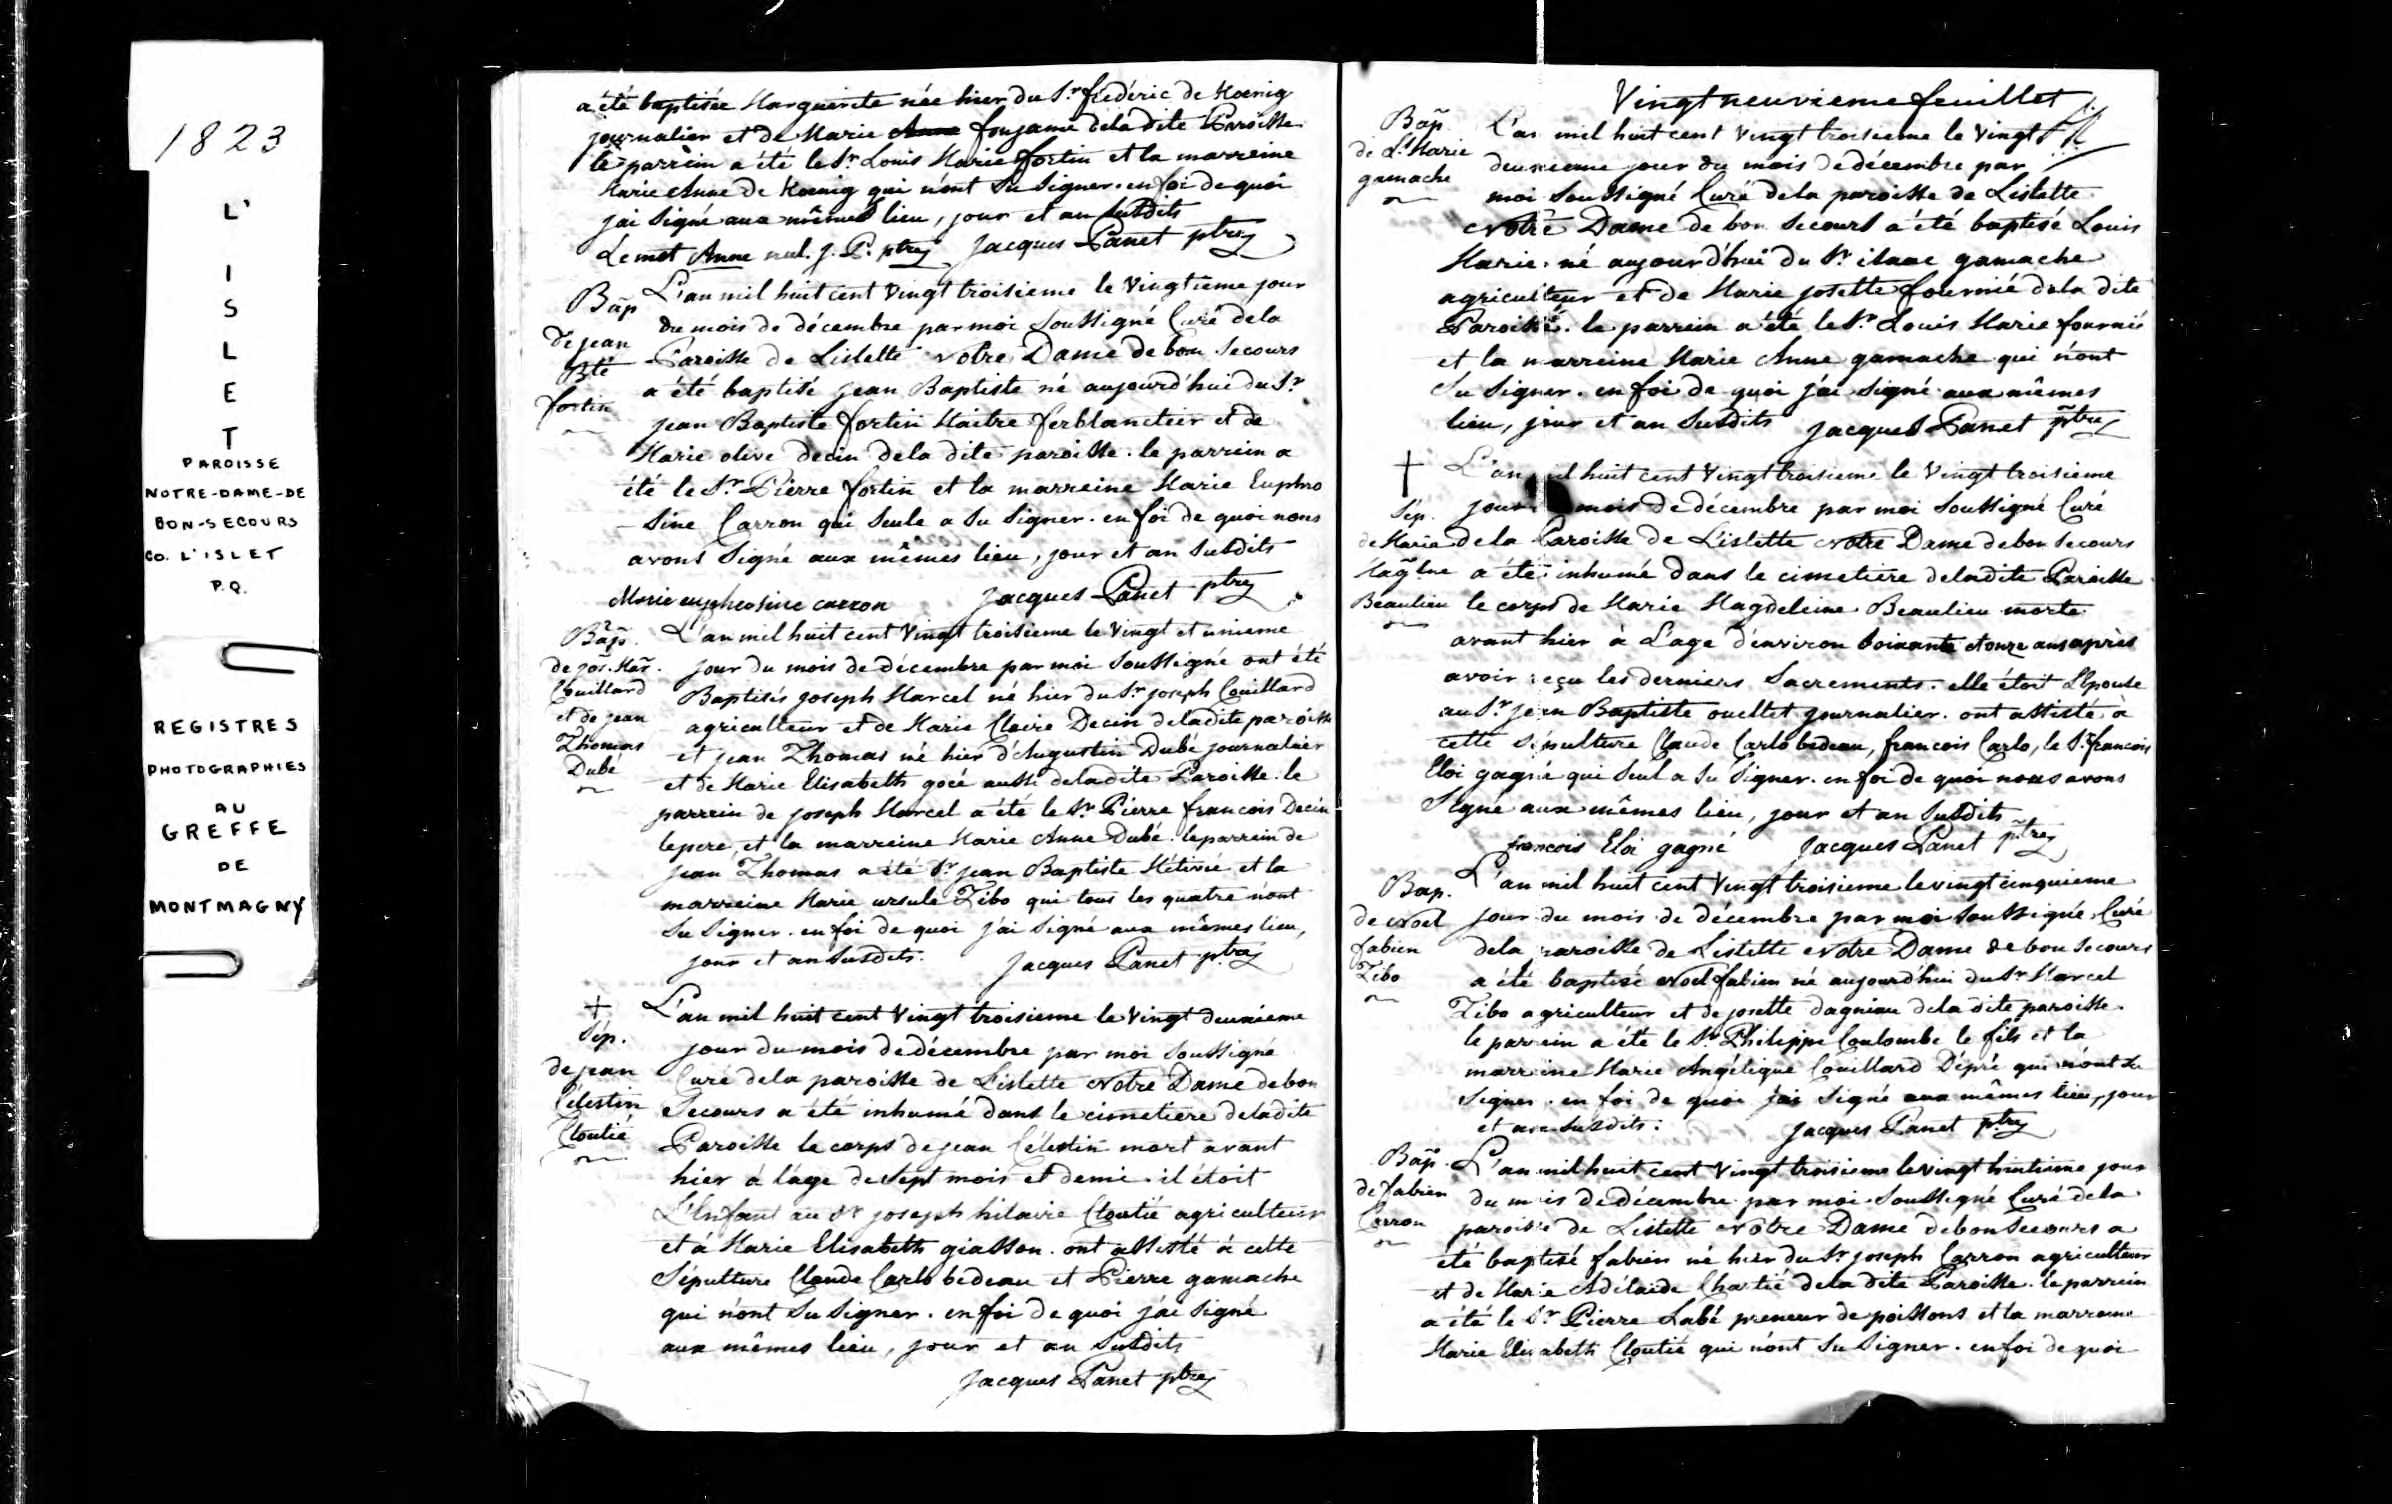 1823
L'
I
S
L
E
T
PAROISSE
NOTRE-DAME-DE
BON-SECOURS
CO. L'ISLET
P.Q.
REGISTRES
PHOTOGRAPHIES
AU
GREFFE
DE
MONTMAGNY
a été baptisée Marguerite née hier du Sr. frédéric de Kœnig
journalier et de Marie Anne foujame dela dite Paroisse
le parrein a été le Sr. Louis Marie fortin et la marreine
Marie Anne de Kœnig qui n'ont su signer. en foi de quoi
j'ai signé aux mêmes lieu, jour et an susdits
Le mot Anne nul. J. P. ptre Jacques Panet ptre
Bap̃
de jean
Bte
fortin
L'an mil huit cent vingt troisieme le vingtieme jour
du mois de décembre par moi soussigné Curé dela
Paroisse de Lislette Notre Dame de bon Secours
a été baptisé jean Baptiste né aujourd'hui du Sr
jean Baptiste fortin Maitre ferblanctier et de
Marie olive decin dela dite paroisse. le parrein a
été le Sr. Pierre fortin et la marreine Marie Euphro
sine Carron qui seule a su signer. en foi de quoi nous
avons signé aux mêmes lieu, jour et an susdits
Marie eupheosine carron Jacques Panet ptre
Bap̃.
de jos. Mar.
Couillard
et de jean
Thomas
Dubé
L'an mil huit cent vingt troisieme le vingt et unieme
jour du mois de décembre par moi soussigné ont été
Baptisés joseph Marcel né hier du Sr. joseph Couillard
agriculteur et de Marie Claire Decin deladite paroisse
et jean Thomas né hier d'Augustin Dubé journalier
et de Marie Elisabeth gocé aussi deladite Paroisse. le
parrein de joseph Marcel a été le Sr. Pierre francois Decin
lepere, et la marreine Marie Anne Dubé. le parrein de
jean Thomas a été Sr. jean Baptiste Métivié et la
marreine Marie ursule Zibo qui tous les quatre n'ont
su signer. en foi de quoi j'ai signé aux mêmes lieu,
jour et an susdits. Jacques Panet ptre
+
Sép.
de jean
Célestin
Cloutié
L'an mil huit cent vingt troisieme le vingt deuxieme
jour du mois de décembre par moi soussigné
Curé dela paroisse de Lislette Notre Dame de bon
Secours a été inhumé dans le cimetiere deladite
Paroisse le corps de jean Célestin mort avant
hier à l'age de sept mois et demi. il étoit
L'Enfant au Sr joseph hilaire Cloutié agriculteur
et à Marie Elisabeth giasson. ont assisté à cette
Sépulture Claude Carlo bedeau et Pierre gamache
qui n'ont su signer. en foi de quoi j'ai signé
aux mêmes lieu, jour et an susdits
Jacques Panet ptre
Vingt neuvieme feuillet
Bap̃
de Ls. Marie
gamache
L'an mil huit cent vingt troisieme le vingt
deuxieme jour du mois de décembre par
moi soussigné Curé dela paroisse de Lislette
Notre Dame de bon Secours a été baptisé Louis
Marie. né aujourd'hui du Sr. isaac gamache
agriculteur et de Marie josette fournié dela dite
Paroisse. le parrein a été le Sr. Louis Marie fournié
et la marreine Marie Anne gamache qui n'ont
su signer. en foi de quoi j'ai signé aux mêmes
lieu, jour et an susdits Jacques Panet ptre
+
Sép.
de Marie
Magne
Beaulieu
L'an mil huit cent vingt troisieme le vingt troisieme
jour mois de décembre par moi soussigné Curé
de la Paroisse de L'islette Notre Dame de bon secours
a été inhumé dans le cimetiere deladite Paroisse
le corps de Marie Magdeleine Beaulieu morte
avant hier à L'age d'environ soixante et onze ans après
avoir reçu les derniers Sacrements. elle étoit L'Epouse
au Sr. jean Baptiste ouellet journalier. ont assisté à
cette sépulture Claude Carlo bedeau, francois Carlo, le Sr. francois
Eloi gagné qui seul a su signer. en foi de quoi nous avons
signé aux mêmes lieu, jour et an susdits
francois Eloi gagné Jacques Panet ptre
Bap.
de Noel
fabien
Zibo
L'an mil huit cent vingt troisieme le vingt cinquieme
jour du mois de décembre par moi soussigné Curé
dela paroisse de Lislette Notre Dame de bon Secours
a été baptisé Noel fabien né aujourd'hui du Sr. Marcel
Zibo agriculteur et de josette dagniau dela dite paroisse
le parrein a été le Sr. Philippe Coulombe le fils et la
marreine Marie Angélique Couillard Dépré qui n'ont su
signer. en foi de quoi j'ai signé aux mêmes lieu, jour
et an susdits. Jacques Panet ptre
Bap̃.
de fabien
Carron
L'an mil huit cent vingt troisieme le vingt huitieme jour
du mois de décembre par moi soussigné Curé dela
paroisse de Lislette Notre Dame debon Secours a
été baptisé fabien né hier du Sr joseph Carron agriculteur
et de Marie Adélaide Chartié dela dite Paroisse. le parrein
a été le Sr Pierre Labé preneur de poissons et la marreine
Marie Elisabeth Cloutié qui n'ont su signer. en foi de quoi